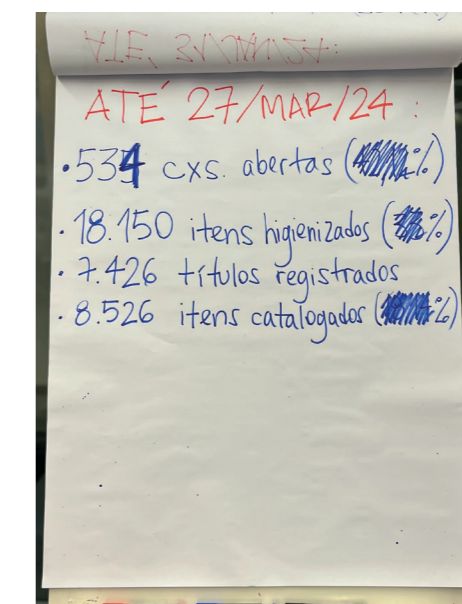 ATÉ 27/MAR/24:
• 534 cxs. abertas ( %)
• 18.150 itens higienizados ( %)
• 7.426 títulos registrados
• 8.526 itens catalogados ( %)